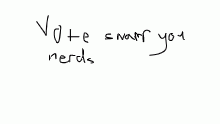 Vote smart you
nerds